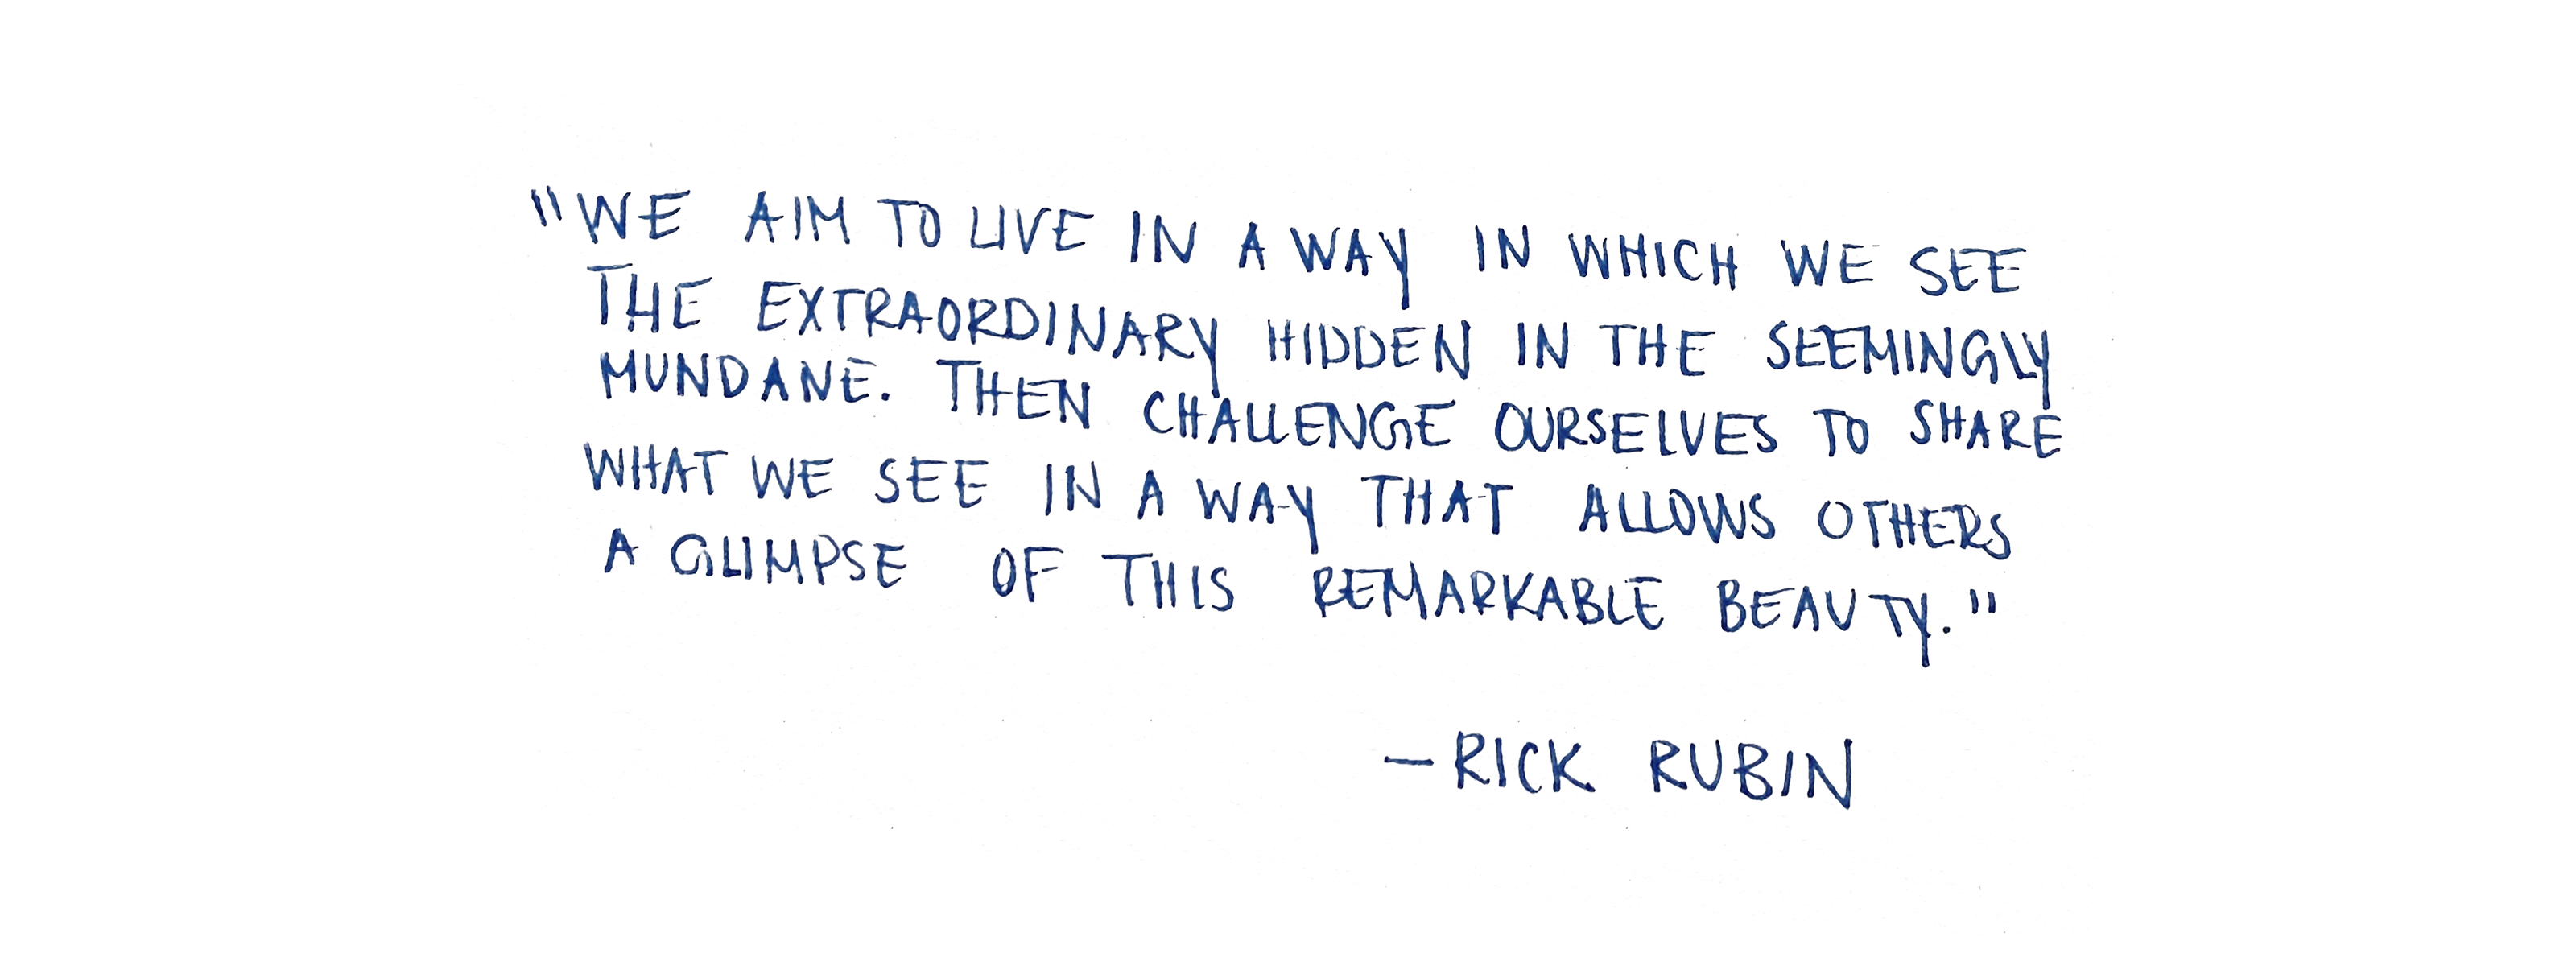 "WE AIM TO LIVE IN A WAY IN WHICH WE SEE
THE EXTRAORDINARY HIDDEN IN THE SEEMINGLY
MUNDANE. THEN CHALLENGE OURSELVES TO SHARE
WHAT WE SEE IN A WAY THAT ALLOWS OTHERS
A GLIMPSE OF THIS REMARKABLE BEAUTY."
—RICK RUBIN